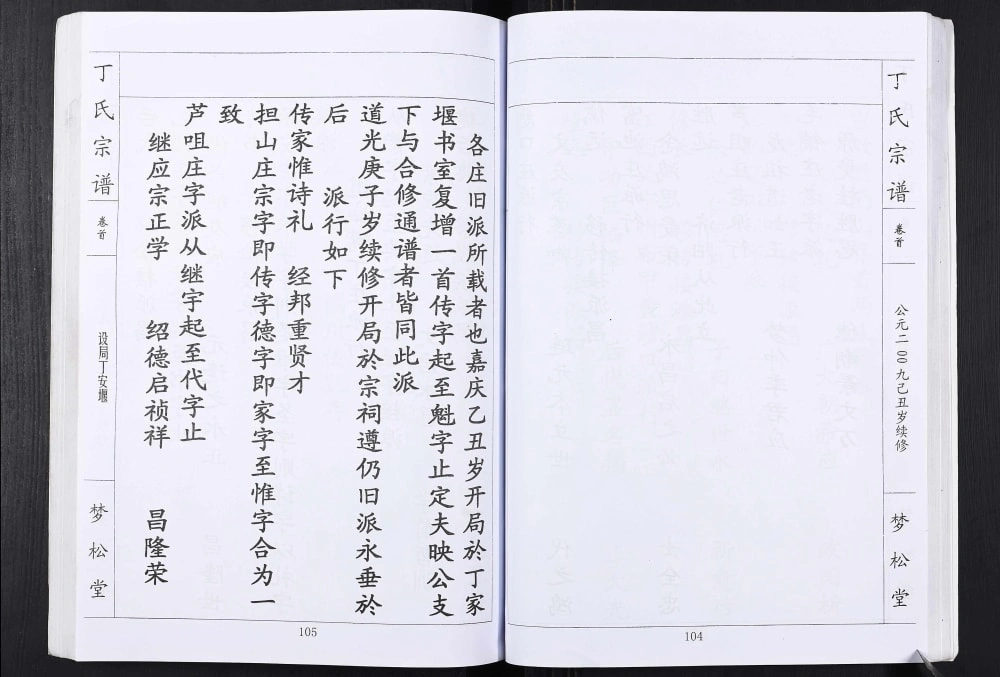 丁氏宗谱
卷首
公元二〇〇九己丑岁续修
梦松堂
104
各庄旧派所载者也嘉庆乙丑岁开局於丁家
堰书室复增一首传字起至魁字止定夫映公支
下与合修通谱者皆同此派
道光庚子岁续修开局於宗祠遵仍旧派永垂於
后 派行如下
传家惟诗礼 经邦重贤才
担山庄宗字即传字德字即家字至惟字合为一
致
芦咀庄字派从继宇起至代字止
继应宗正学 绍德启祯祥 昌隆荣
丁氏宗谱
卷首
设局丁安堰
梦松堂
105